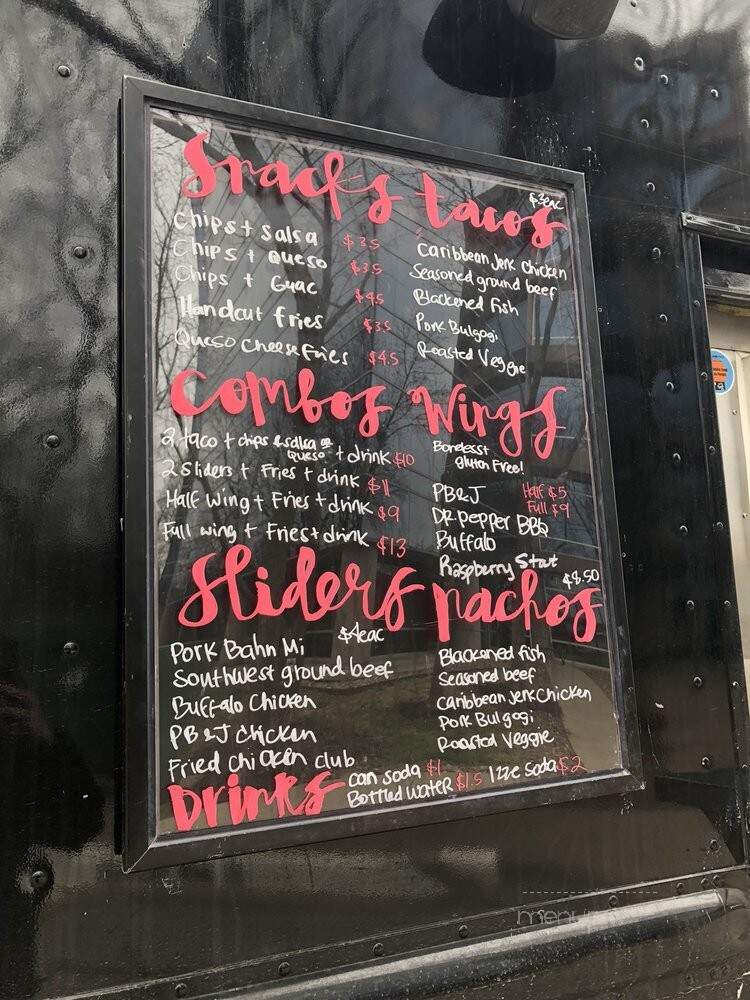 Snacks
Chips + Salsa $3.5
Chips + Queso $3.5
Chips + Guac $4.5
Handcut fries $3.5
Queso Cheese Fries $4.5
tacos
$3eac
Caribbean Jerk Chicken
Seasoned ground beef
Blackened fish
Pork Bulgogi
Roasted Veggie
Combos
2 taco + chips & salsa or queso + drink $10
2 Sliders + Fries + drink $11
Half Wing + Fries + drink $9
Full wing + Fries + drink $13
Wings
Boneless +
gluten Free!
PB&J Half $5
Full $9
DR. Pepper BBQ
Buffalo
Raspberry Stout
Sliders
$4eac
Pork Bahn Mi
Southwest ground beef
Buffalo Chicken
PB&J Chicken
Fried chicken club
nachos
$8.50
Blackened fish
Seasoned beef
Caribbean Jerk Chicken
Pork Bulgogi
Roasted Veggie
Drinks
can soda $1
Bottled Water $1.5
Izze Soda $2